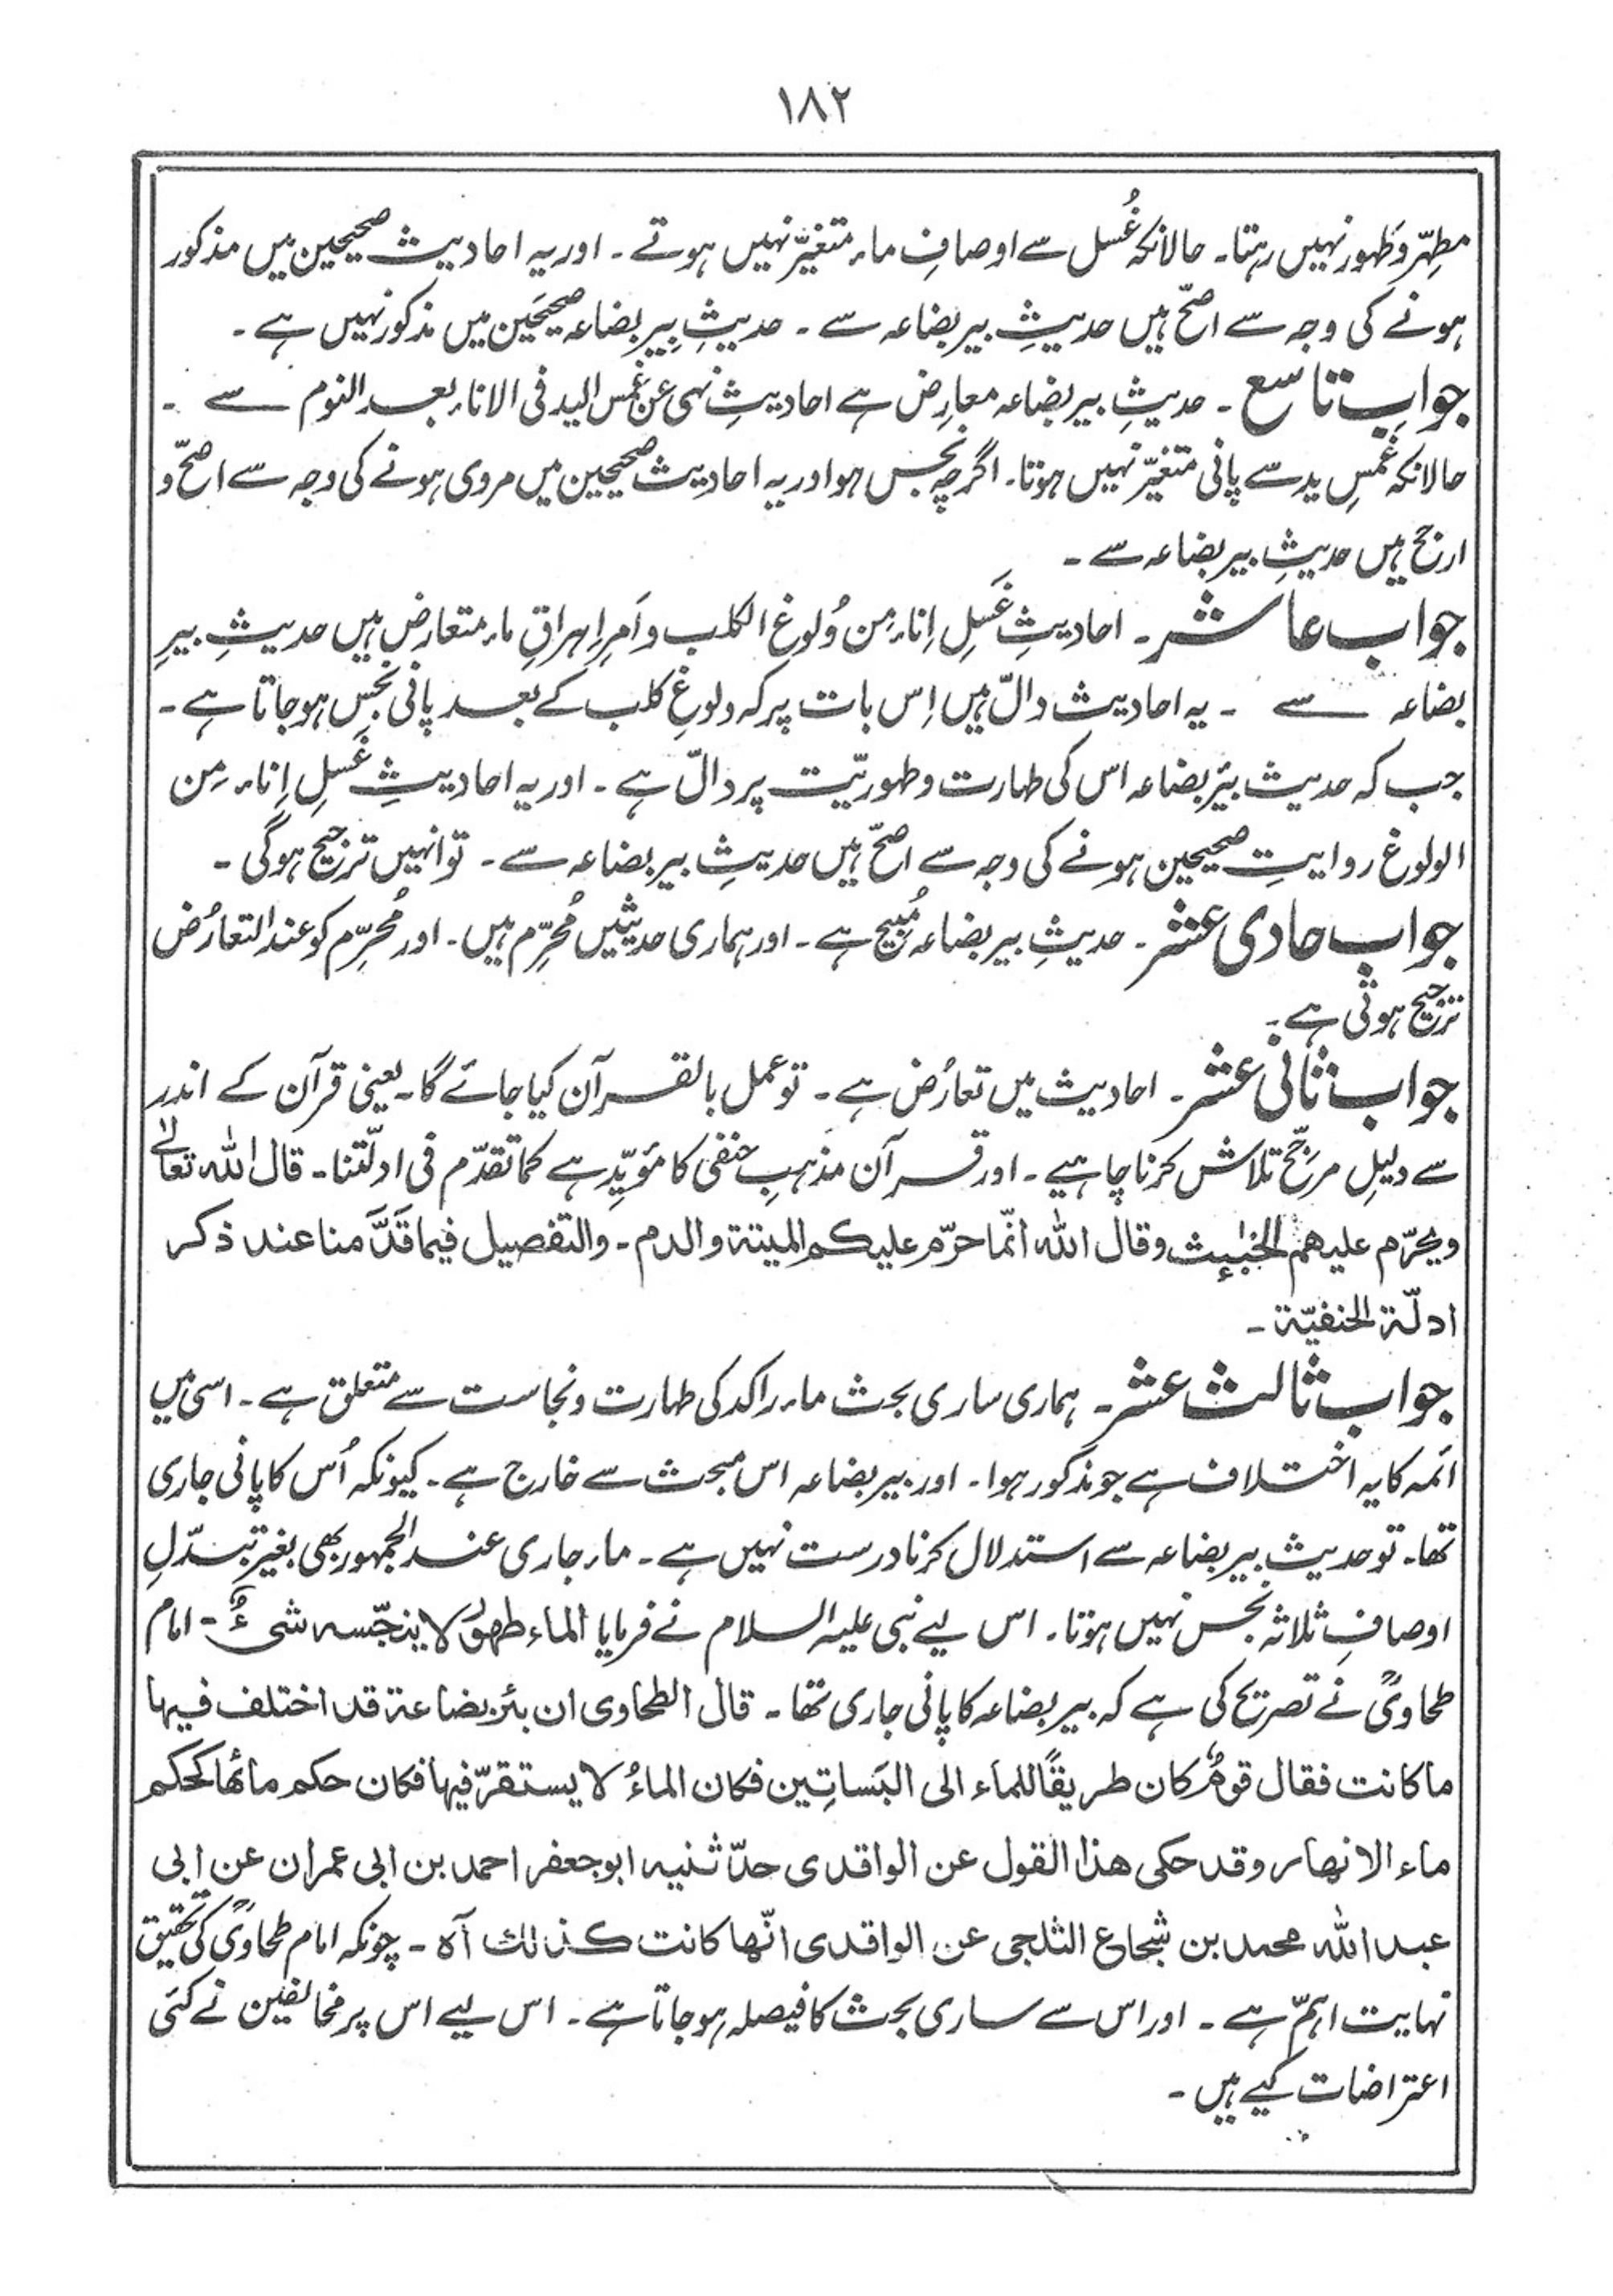 ۱۸۲
مطہّر وطَہور نہیں رہتا۔ حالانکہ غُسل سے اوصافِ ماء متغیّر نہیں ہوتے ۔ اور یہ احادیث صحیحین میں مذکور
ہونے کی وجہ سے اصحّ ہیں حدیثِ بیر بضاعہ سے ۔ حدیثِ بیرِ بضاعہ صحیحَین میں مذکور نہیں ہے ۔
جوابِ تاسع ۔ حدیثِ بیر بضاعہ معارِض ہے احادیثِ نہی عن غمس الید فی الاناء بعد النوم سے ۔
حالانکہ غمسِ ید سے پانی متغیّر نہیں ہوتا۔ اگرچہ نجس ہو اور یہ احادیث صحیحین میں مروی ہونے کی وجہ سے اصحّ و
ارجح ہیں حدیثِ بیر بضاعہ سے ۔
جواب عاشر ۔ احادیثِ غَسلِ اِناء مِن وُلوغِ الکلب و اَمرِ اِہراقِ ماء متعارض ہیں حدیثِ بیرِ
بضاعہ سے ۔ یہ احادیث دالّ ہیں اِس بات پر کہ ولوغِ کلب کے بعد پانی نجس ہوجاتا ہے ۔
جب کہ حدیث بئر بضاعہ اس کی طہارت وطہوریّت پر دالّ ہے ۔ اور یہ احادیثِ غَسلِ اِناء مِن
الولوغ روایتِ صحیحین ہونے کی وجہ سے اصحّ ہیں حدیثِ بیر بضاعہ سے ۔ تو انہیں ترجیح ہوگی ۔
جواب حادی عشر ۔ حدیثِ بیر بضاعہ مُبیح ہے ۔ اور ہماری حدیثیں مُحَرِّم ہیں۔ اور مُحَرِّم کو عند التعارُض
ترجیح ہوتی ہے ۔
جواب ثانی عشر ۔ احادیث میں تعارُض ہے ۔ تو عمل بالقرآن کیا جائے گا۔ یعنی قرآن کے اندر
سے دلیلِ مرجّح تلاش کرنا چاہیے ۔ اور قرآن مذہبِ حنفی کا مؤیِّد ہے کما تقدّم فی ادلّتنا ۔ قال اللہ تعالیٰ
ویحرّم علیہم الخبٰئث وقال اللہ انّما حرّم علیکم المیتۃ والدم ۔ والتفصیل فیما قَدَّمنا عند ذکر
ادلّۃ الحنفیّۃ ۔
جواب ثالث عشر ۔ ہماری ساری بحث ماء راکد کی طہارت ونجاست سے متعلق ہے ۔ اسی میں
ائمہ کا یہ اختلاف ہے جو مذکور ہوا ۔ اور بیر بضاعہ اس مبحث سے خارج ہے ۔ کیونکہ اُس کا پانی جاری
تھا۔ تو حدیث بیر بضاعہ سے استدلال کرنا درست نہیں ہے ۔ ماء جاری عند الجمہور بھی بغیر تبدّلِ
اوصافِ ثلاثہ نجس نہیں ہوتا ۔ اس لیے نبی علیہ السلام نے فرمایا الماء طهورٌ لا ینجّسه شیءٌ ۔ امام
طحاویؒ نے تصریح کی ہے کہ بیر بضاعہ کا پانی جاری تھا ۔ قال الطحاوی ان بئر بضاعۃ قد اختلف فیها
ما کانت فقال قومٌ کان طریقًا للماء الی البَساتِین فکان الماءُ لا یستقرّ فیها فکان حکم مائها کحکم
ماء الانهار وقد حکی هذا القول عن الواقدی حدّثنیه ابوجعفر احمد بن ابی عمران عن ابی
عبد اللہ محمد بن شجاع الثلجی عن الواقدی انّها کانت کذلك آہ ۔ چونکہ امام طحاویؒ کی تحقیق
نہایت اہمّ ہے ۔ اور اس سے ساری بحث کا فیصلہ ہوجاتا ہے ۔ اس لیے اس پر مخالفین نے کئی
اعتراضات کیے ہیں ۔